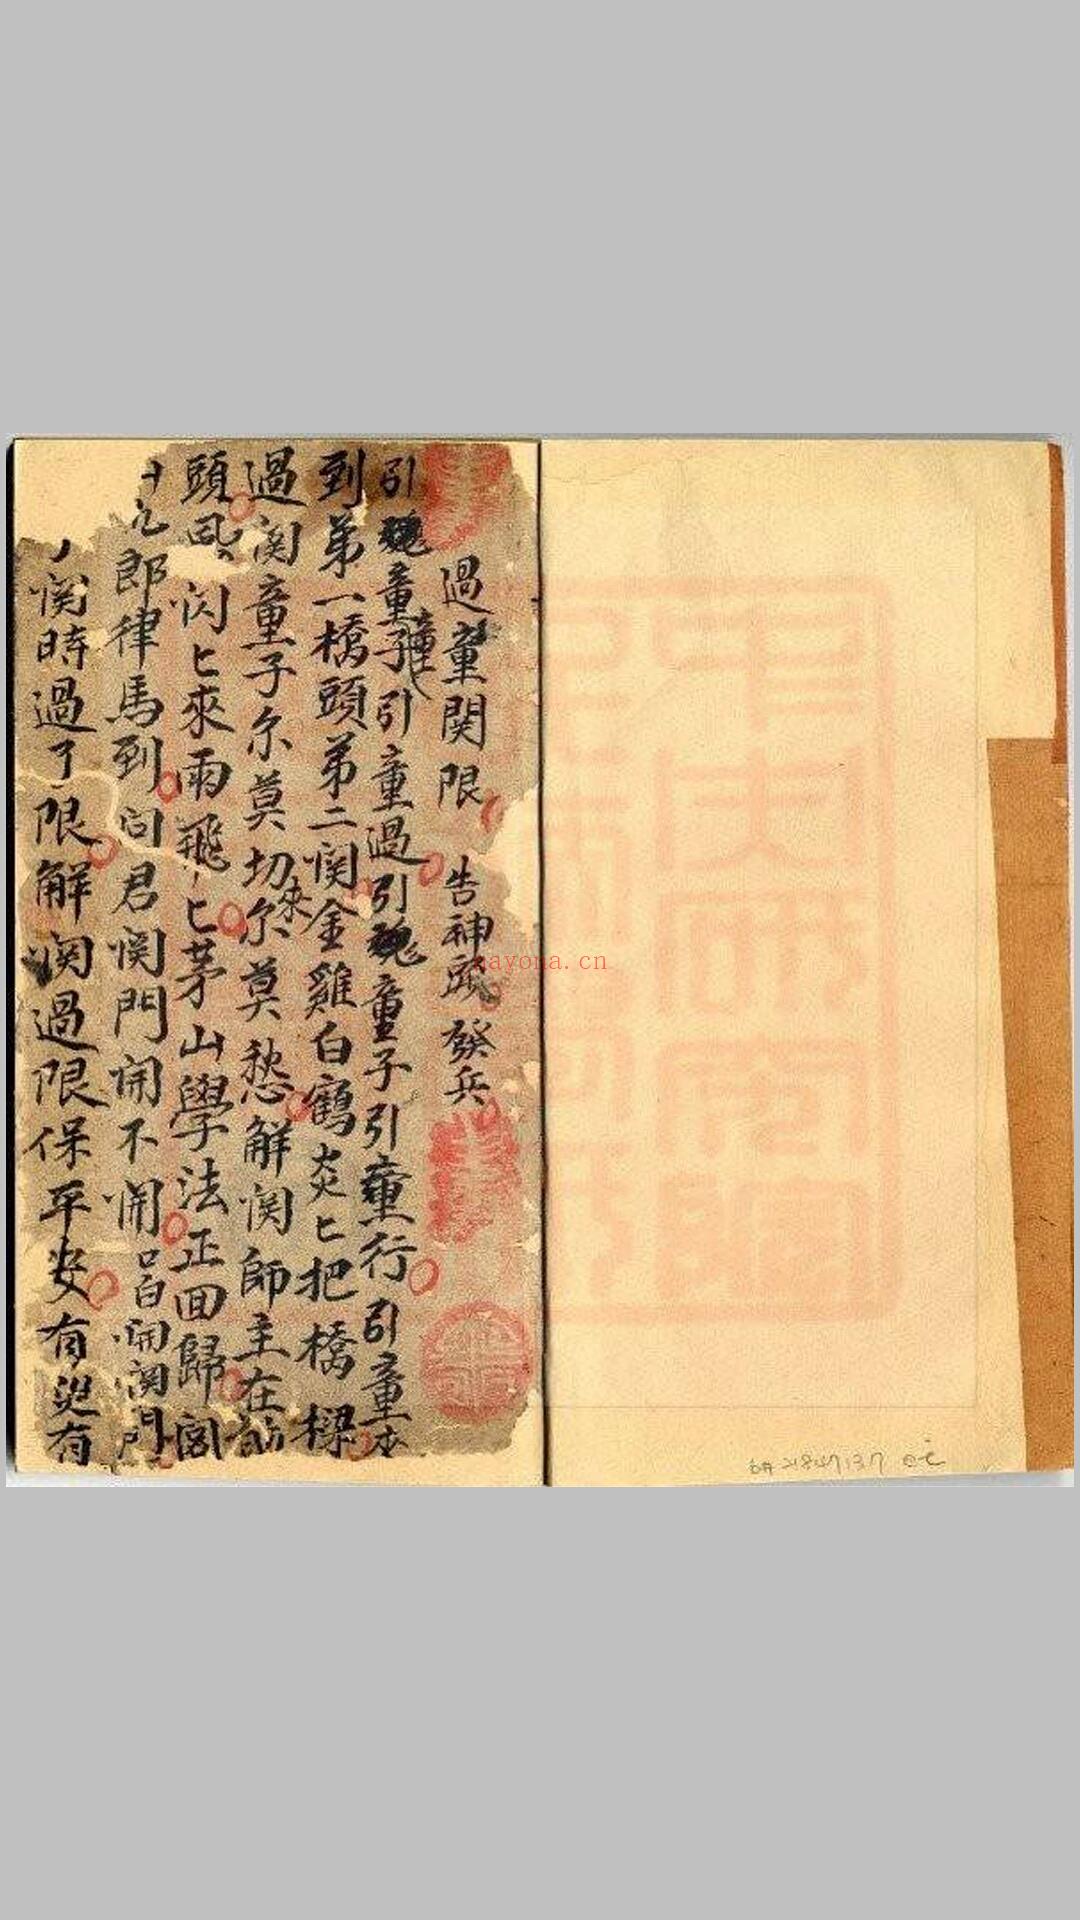 過童関限 告神頭 發兵
引魂童子引童過引魂童子引童行引童本
童
到苐一橋頭苐二関金雞白鶴炎匕把橋樑
過関童子尔莫切尔莫愁解関師主在前
來
頭風閃匕來雨飛匕茅山學法正回歸閣
九郎律馬到问君関門開不開口白開関門
関時過了限解関過限保平安有災有
nayona.cn
2184137